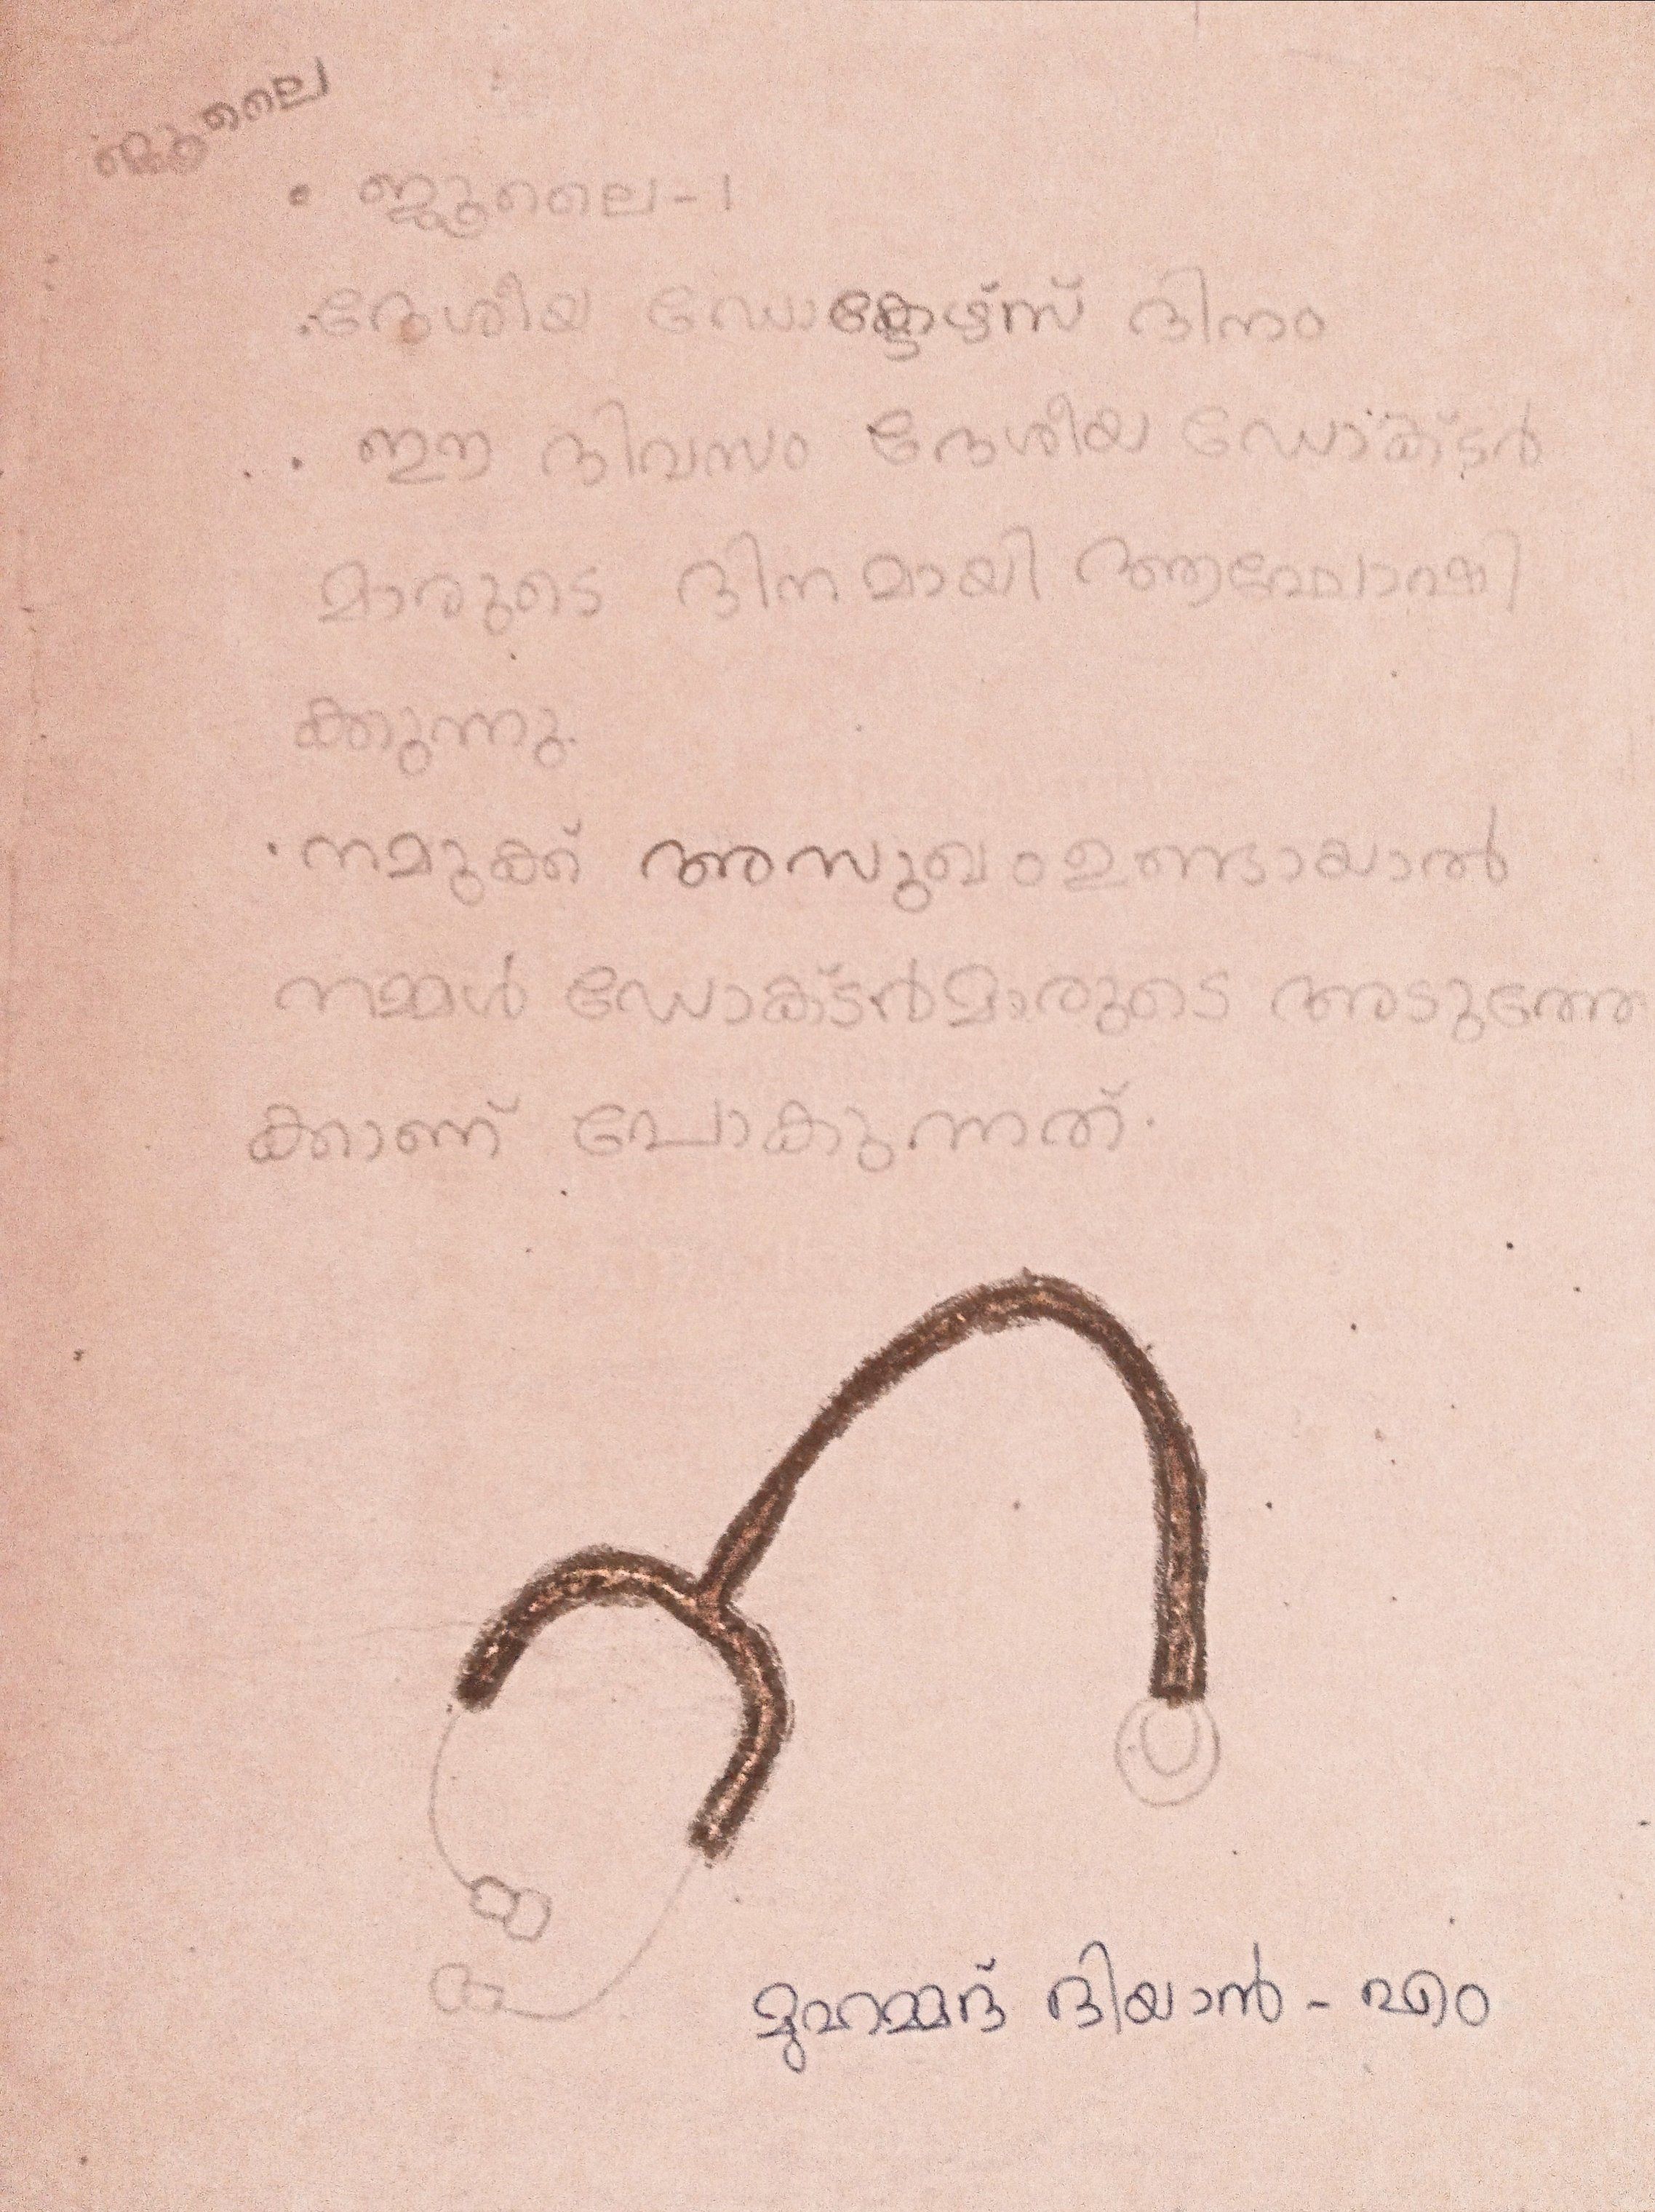 ജൂലൈ
• ജൂലൈ - 1
. ദേശീയ ഡോക്ടേഴ്സ് ദിനം
. . ഈ ദിവസം ദേശീയ ഡോക്ടർ
മാരുടെ ദിനമായി ആഘോഷി
ക്കുന്നു.
. നമുക്ക് അസുഖം ഉണ്ടായാൽ
നമ്മൾ ഡോക്ടർമാരുടെ അടുത്തേ
ക്കാണ് പോകുന്നത്.
മുഹമ്മദ് ദിയാൻ - എം